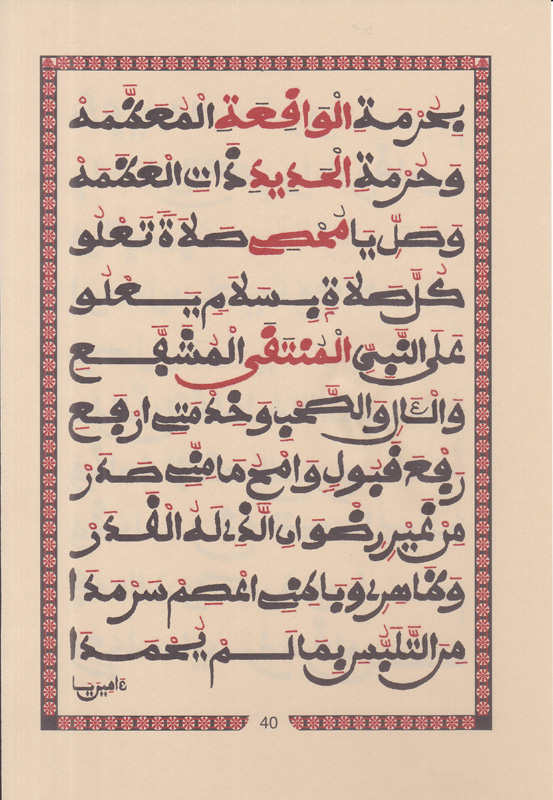 بِحُرْمَةِ الْوَاقِعَةِ الْمُعَظَّمَهْ
وَحُرْمَةِ الْحَدِيدِ ذَاتِ الْعَظَمَهْ
وَصَلِّ يَا مُحْصِي صَلَاةً تَعْلُو
كُلَّ صَلَاةٍ بِسَلَامٍ يَعْلُو
عَلَى النَّبِيِّ الْمُنْتَقَى الْمُشَفَّعِ
وَالْآلِ وَالصَّحْبِ وَخِدْمَتِي ارْفَعِ
رَفْعَ قَبُولٍ وَامْحُ مَا مِنِّي صَدَرْ
مِنْ غَيْرِ رِضْوَانِ الَّذِي لَهُ الْقَدَرْ
وَظَاهِرِي وَبَاطِنِي اعْصِمْ سَرْمَدَا
مِنَ التَّلَبُّسِ بِمَا لَمْ يُحْمَدَا
ءامِينَ يَا
40